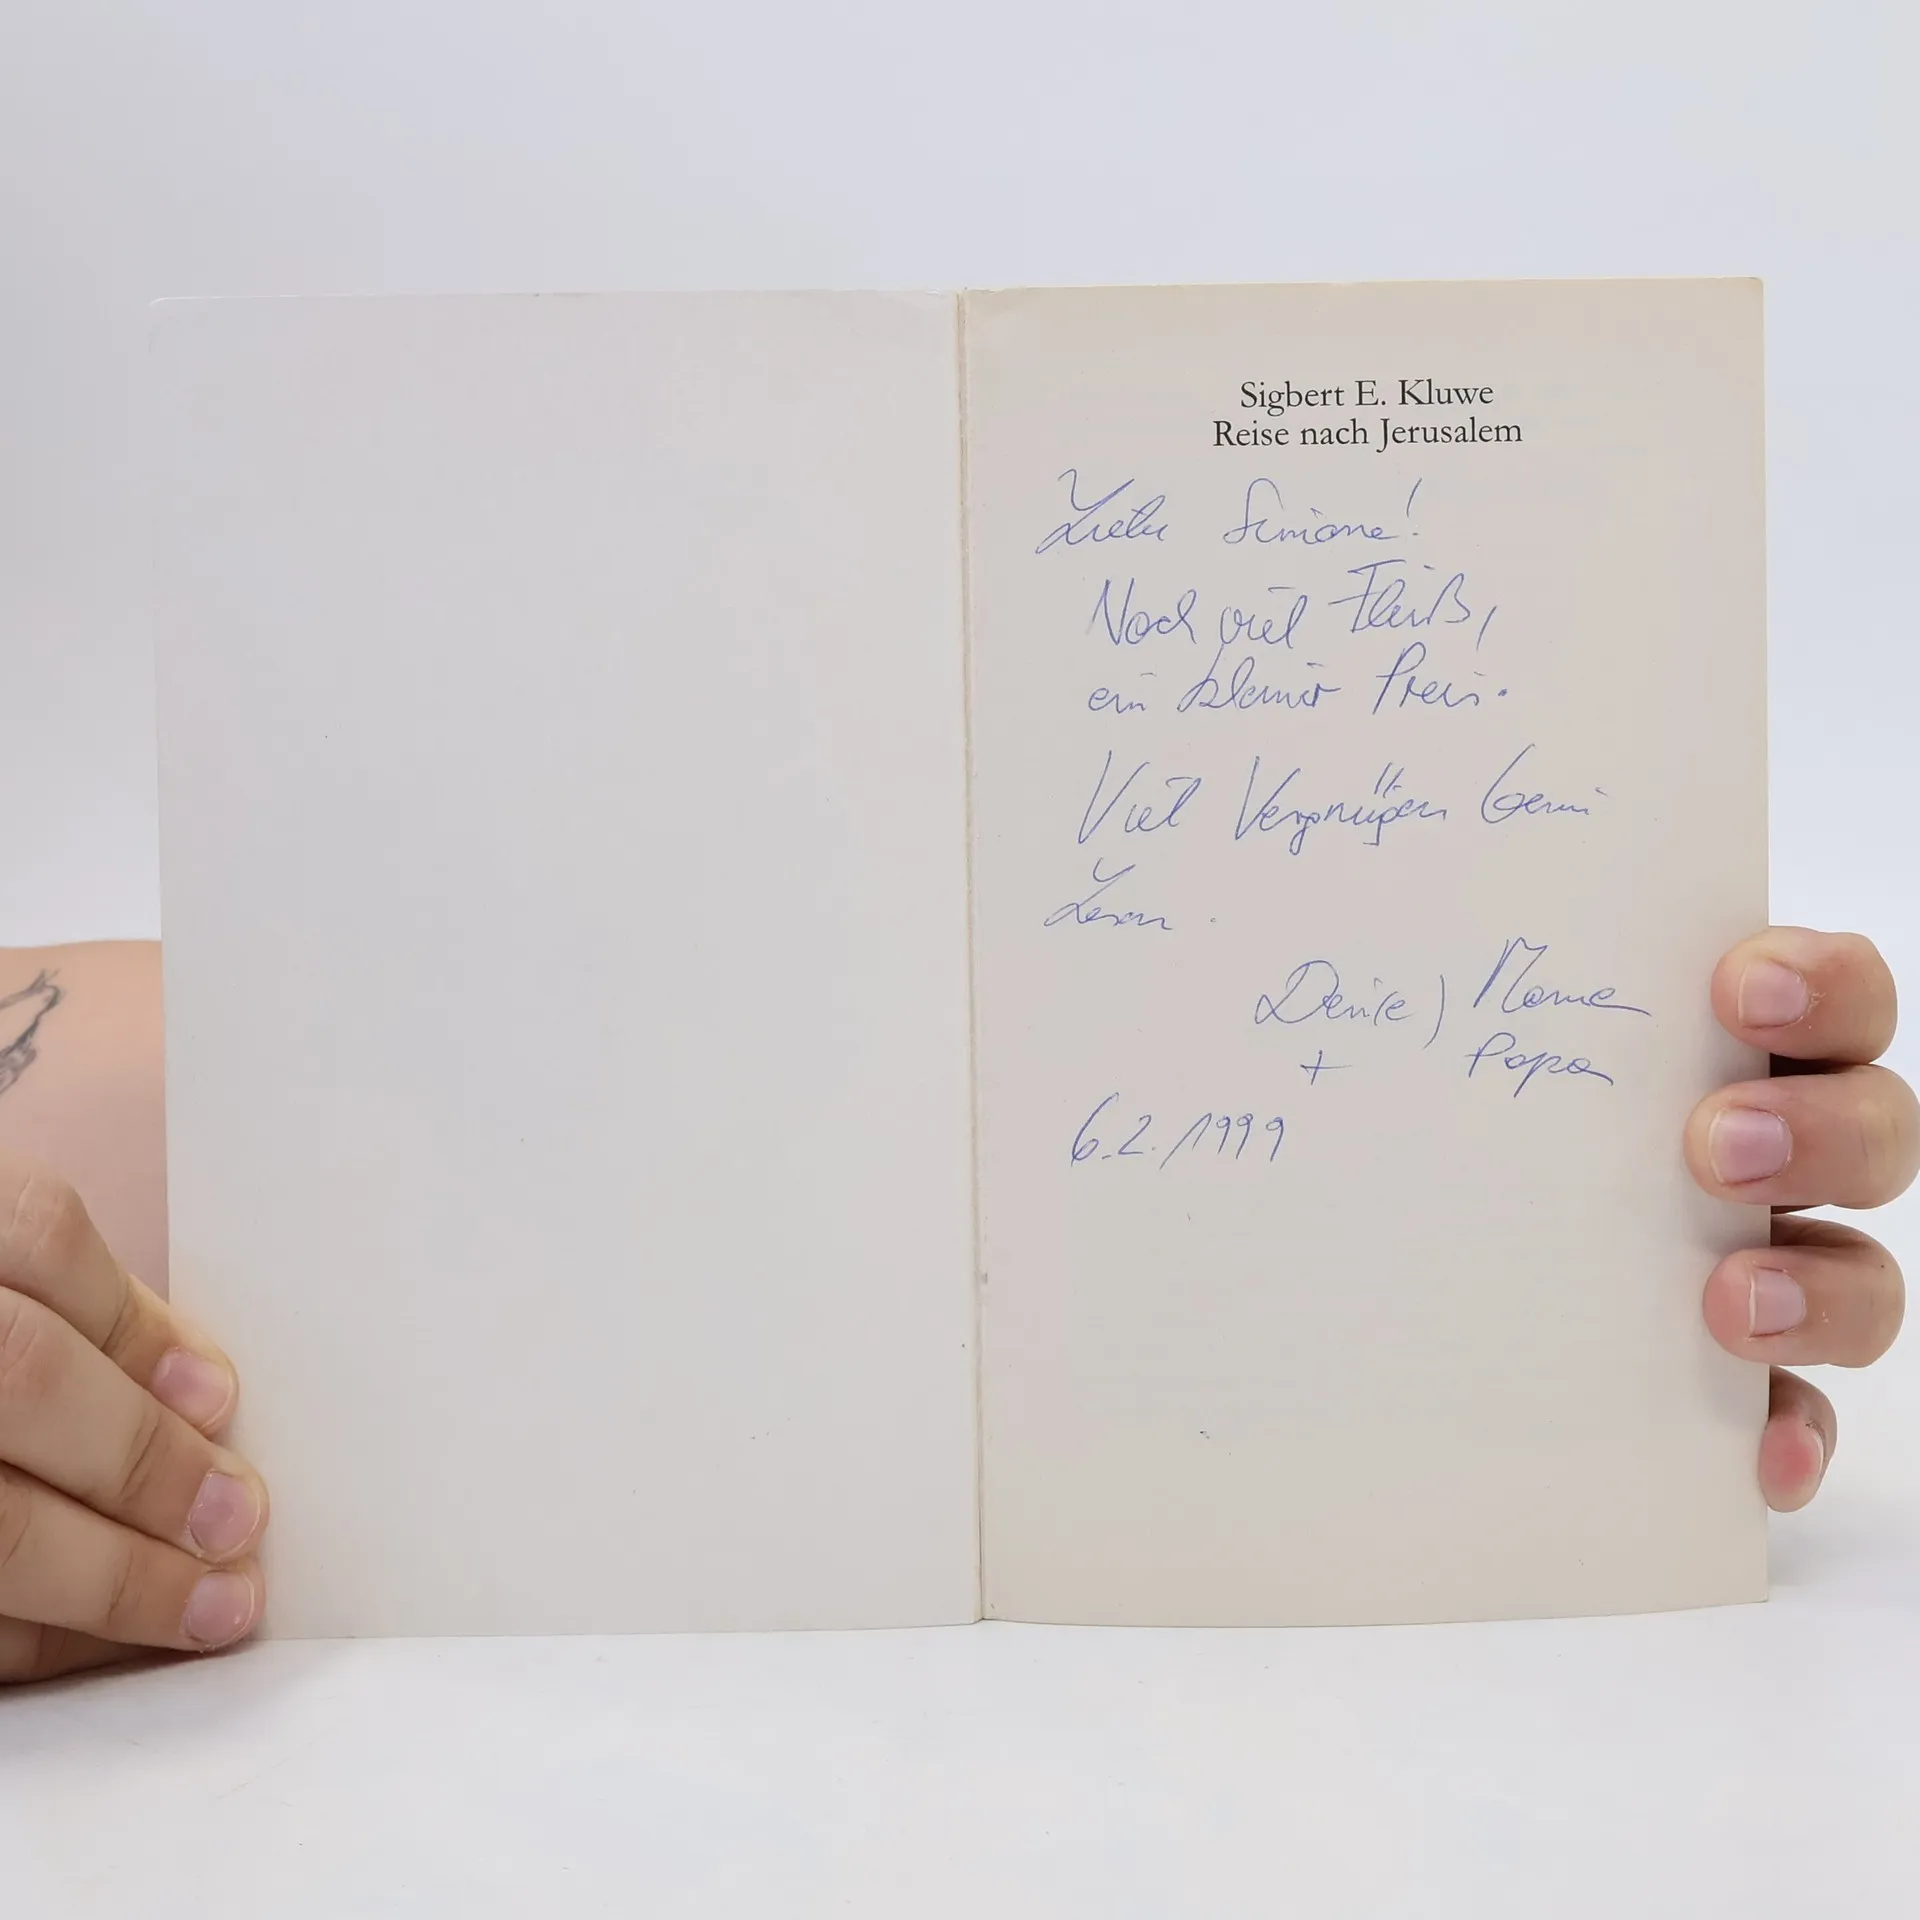 Sigbert E. Kluwe
Reise nach Jerusalem
Liebe Simone!
Noch viel Fleiß,
ein kleiner Preis.
Viel Vergnügen beim
Lesen.
Denise, Mama
+ Papa
6.2.1999